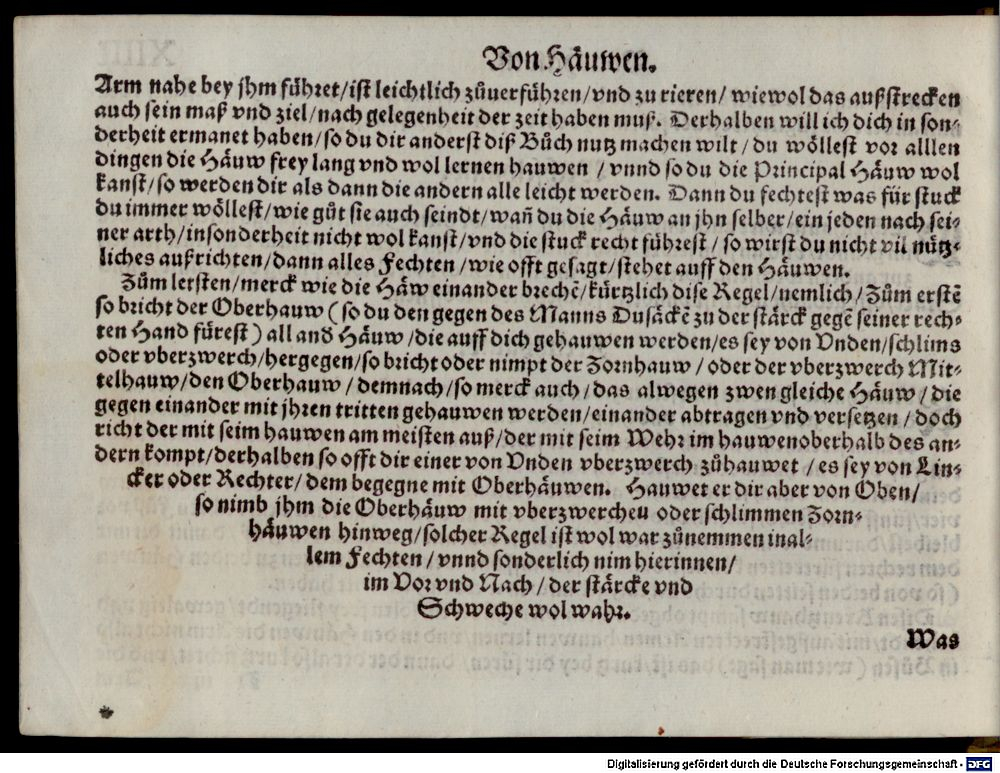 Von Häuwen.
Arm nahe bey jhm führet/ist leichtlich zůuerführen/vnd zu rieren/ wiewol das außstrecken
auch sein maß vnd ziel/nach gelegenheit der zeit haben muß. Derhalben will ich dich in son-
derheit ermanet haben/so du dir anderst diß Bůch nutz machen wilt/du wöllest vor alllen
dingen die Häuw frey lang vnd wol lernen hauwen / vnnd so du die Principal Häuw wol
kanst/so werden dir als dann die andern alle leicht werden. Dann du fechtest was für stuck
du immer wöllest/wie gůt sie auch seindt/wañ du die Häuw an jhn selber/ein jeden nach sei-
ner arth/insonderheit nicht wol kanst/vnd die stuck recht führest/ so wirst du nicht vil nütz-
liches außrichten/dann alles Fechten/wie offt gesagt/stehet auff den Häuwen.
Zům letsten/merck wie die Häw einander brechẽ/kürtzlich dise Regel/nemlich/Zům erstẽ
so bricht der Oberhauw (so du den gegen des Manns Dusäckẽ zu der stärck gegẽ seiner rech-
ten Hand fürest) all and Häuw/die auff dich gehauwen werden/es sey von Vnden/schlims
oder vberzwerch/hergegen/so bricht oder nimpt der Zornhauw/ oder der vberzwerch Mit-
telhauw/den Oberhauw / demnach/so merck auch/das alwegen zwen gleiche Häuw/ die
gegen einander mit jhren tritten gehauwen werden/einander abtragen vnd versetzen/doch
richt der mit seim hauwen am meisten auß/der mit seim Wehr im hauwenoberhalb des an-
dern kompt/derhalben so offt dir einer von Vnden vberzwerch zůhauwet / es sey von Lin-
cker oder Rechter/dem begegne mit Oberhäuwen. Hauwet er dir aber von Oben/
so nimb jhm die Oberhäuw mit vberzwercheu oder schlimmen Zorn-
häuwen hinweg/solcher Regel ist wol war zůnemmen inal-
lem Fechten/vnnd sonderlich nim hierinnen/
im Vor vnd Nach/der stärcke vnd
Schweche wol wahr.
Was
Digitalisierung gefördert durch die Deutsche Forschungsgemeinschaft - DFG